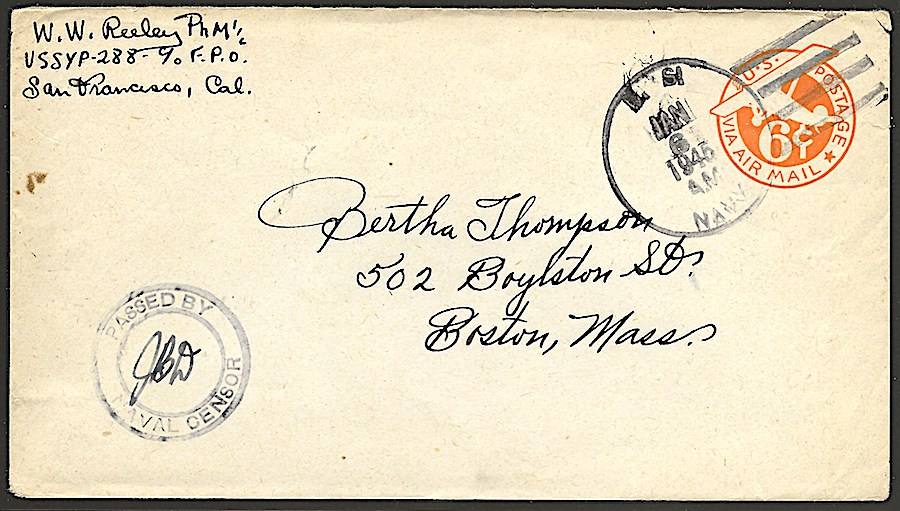 W. W. Reeley PhM 1/c
USS YP-288 - c/o F.P.O.
San Francisco, Cal.
U.S. POSTAGE
VIA AIR MAIL
6¢
JAN
6
1945
A.M.
NAVY
Bertha Thompson
502 Boylston St.
Boston, Mass.
PASSED BY
JBD
NAVAL CENSOR